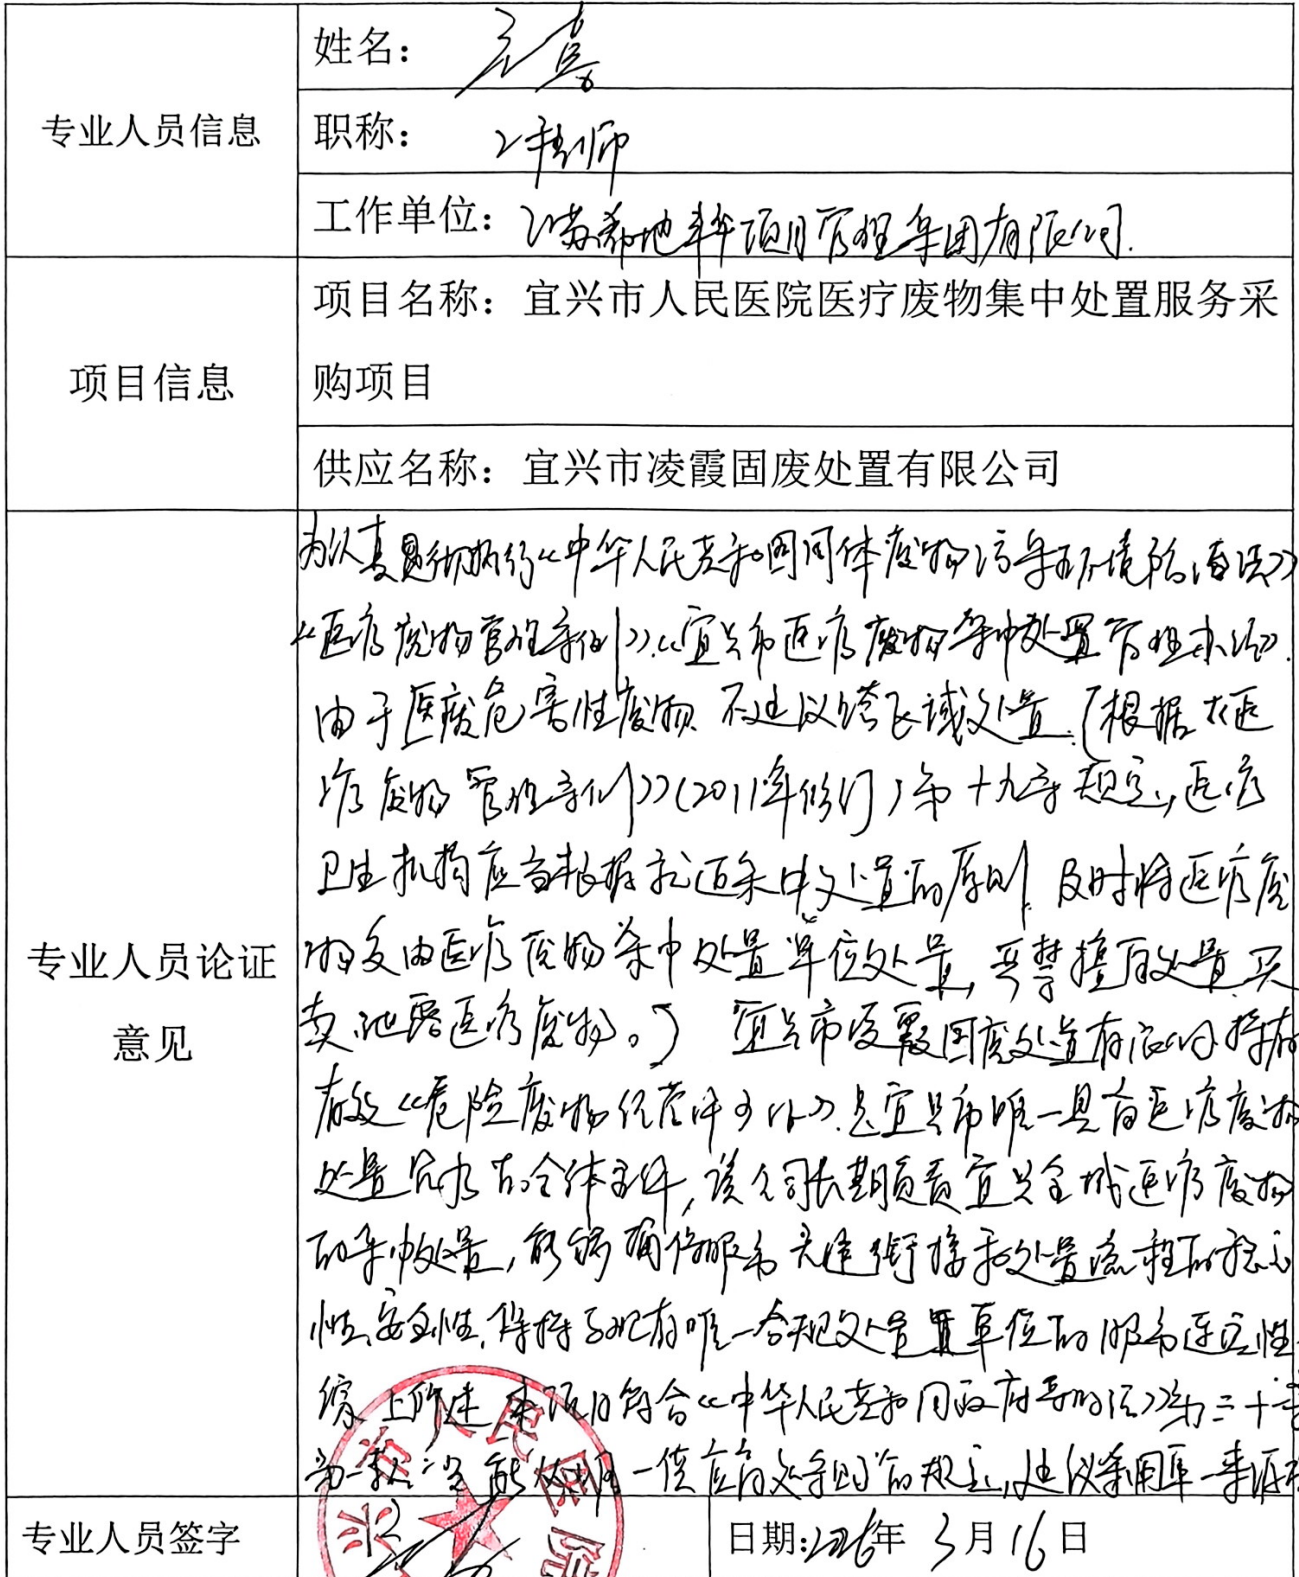 专业人员信息
姓名：
职称：工程师
工作单位：江苏希地丰华项目管理集团有限公司.
项目信息
项目名称：宜兴市人民医院医疗废物集中处置服务采
购项目
供应名称：宜兴市凌霞固废处置有限公司
专业人员论证
意见
为认真贯彻执行《中华人民共和国固体废物污染环境防治法》
《医疗废物管理条例》.《宜兴市医疗废物集中处置管理办法》.
由于医疗危害性废物 不建议跨区域处置.[根据《医
疗废物管理条例》(2011年修订)第十九条规定,医疗
卫生机构应当根据就近集中处置的原则 及时将医疗废
物交由医疗废物集中处置单位处置,严禁擅自处置、买
卖、泄露医疗废物。] 宜兴市凌霞固废处置有限公司持有
有效《危险废物经营许可证》.是宜兴市唯一具有医疗废物
处置 的合体条件,该公司长期负责宜兴全域医疗废物
的集中处置,能够确保服务无缝衔接和处置流程的稳定
性、安全性,保持与现有唯一合规处置单位的服务连续性
综上所述 本项目符合《中华人民共和国政府采购法》第三十一条
第一款 只能从唯一供应商处采购的规定,建议采用单一来源
专业人员签字
日期:2026年 3月16日